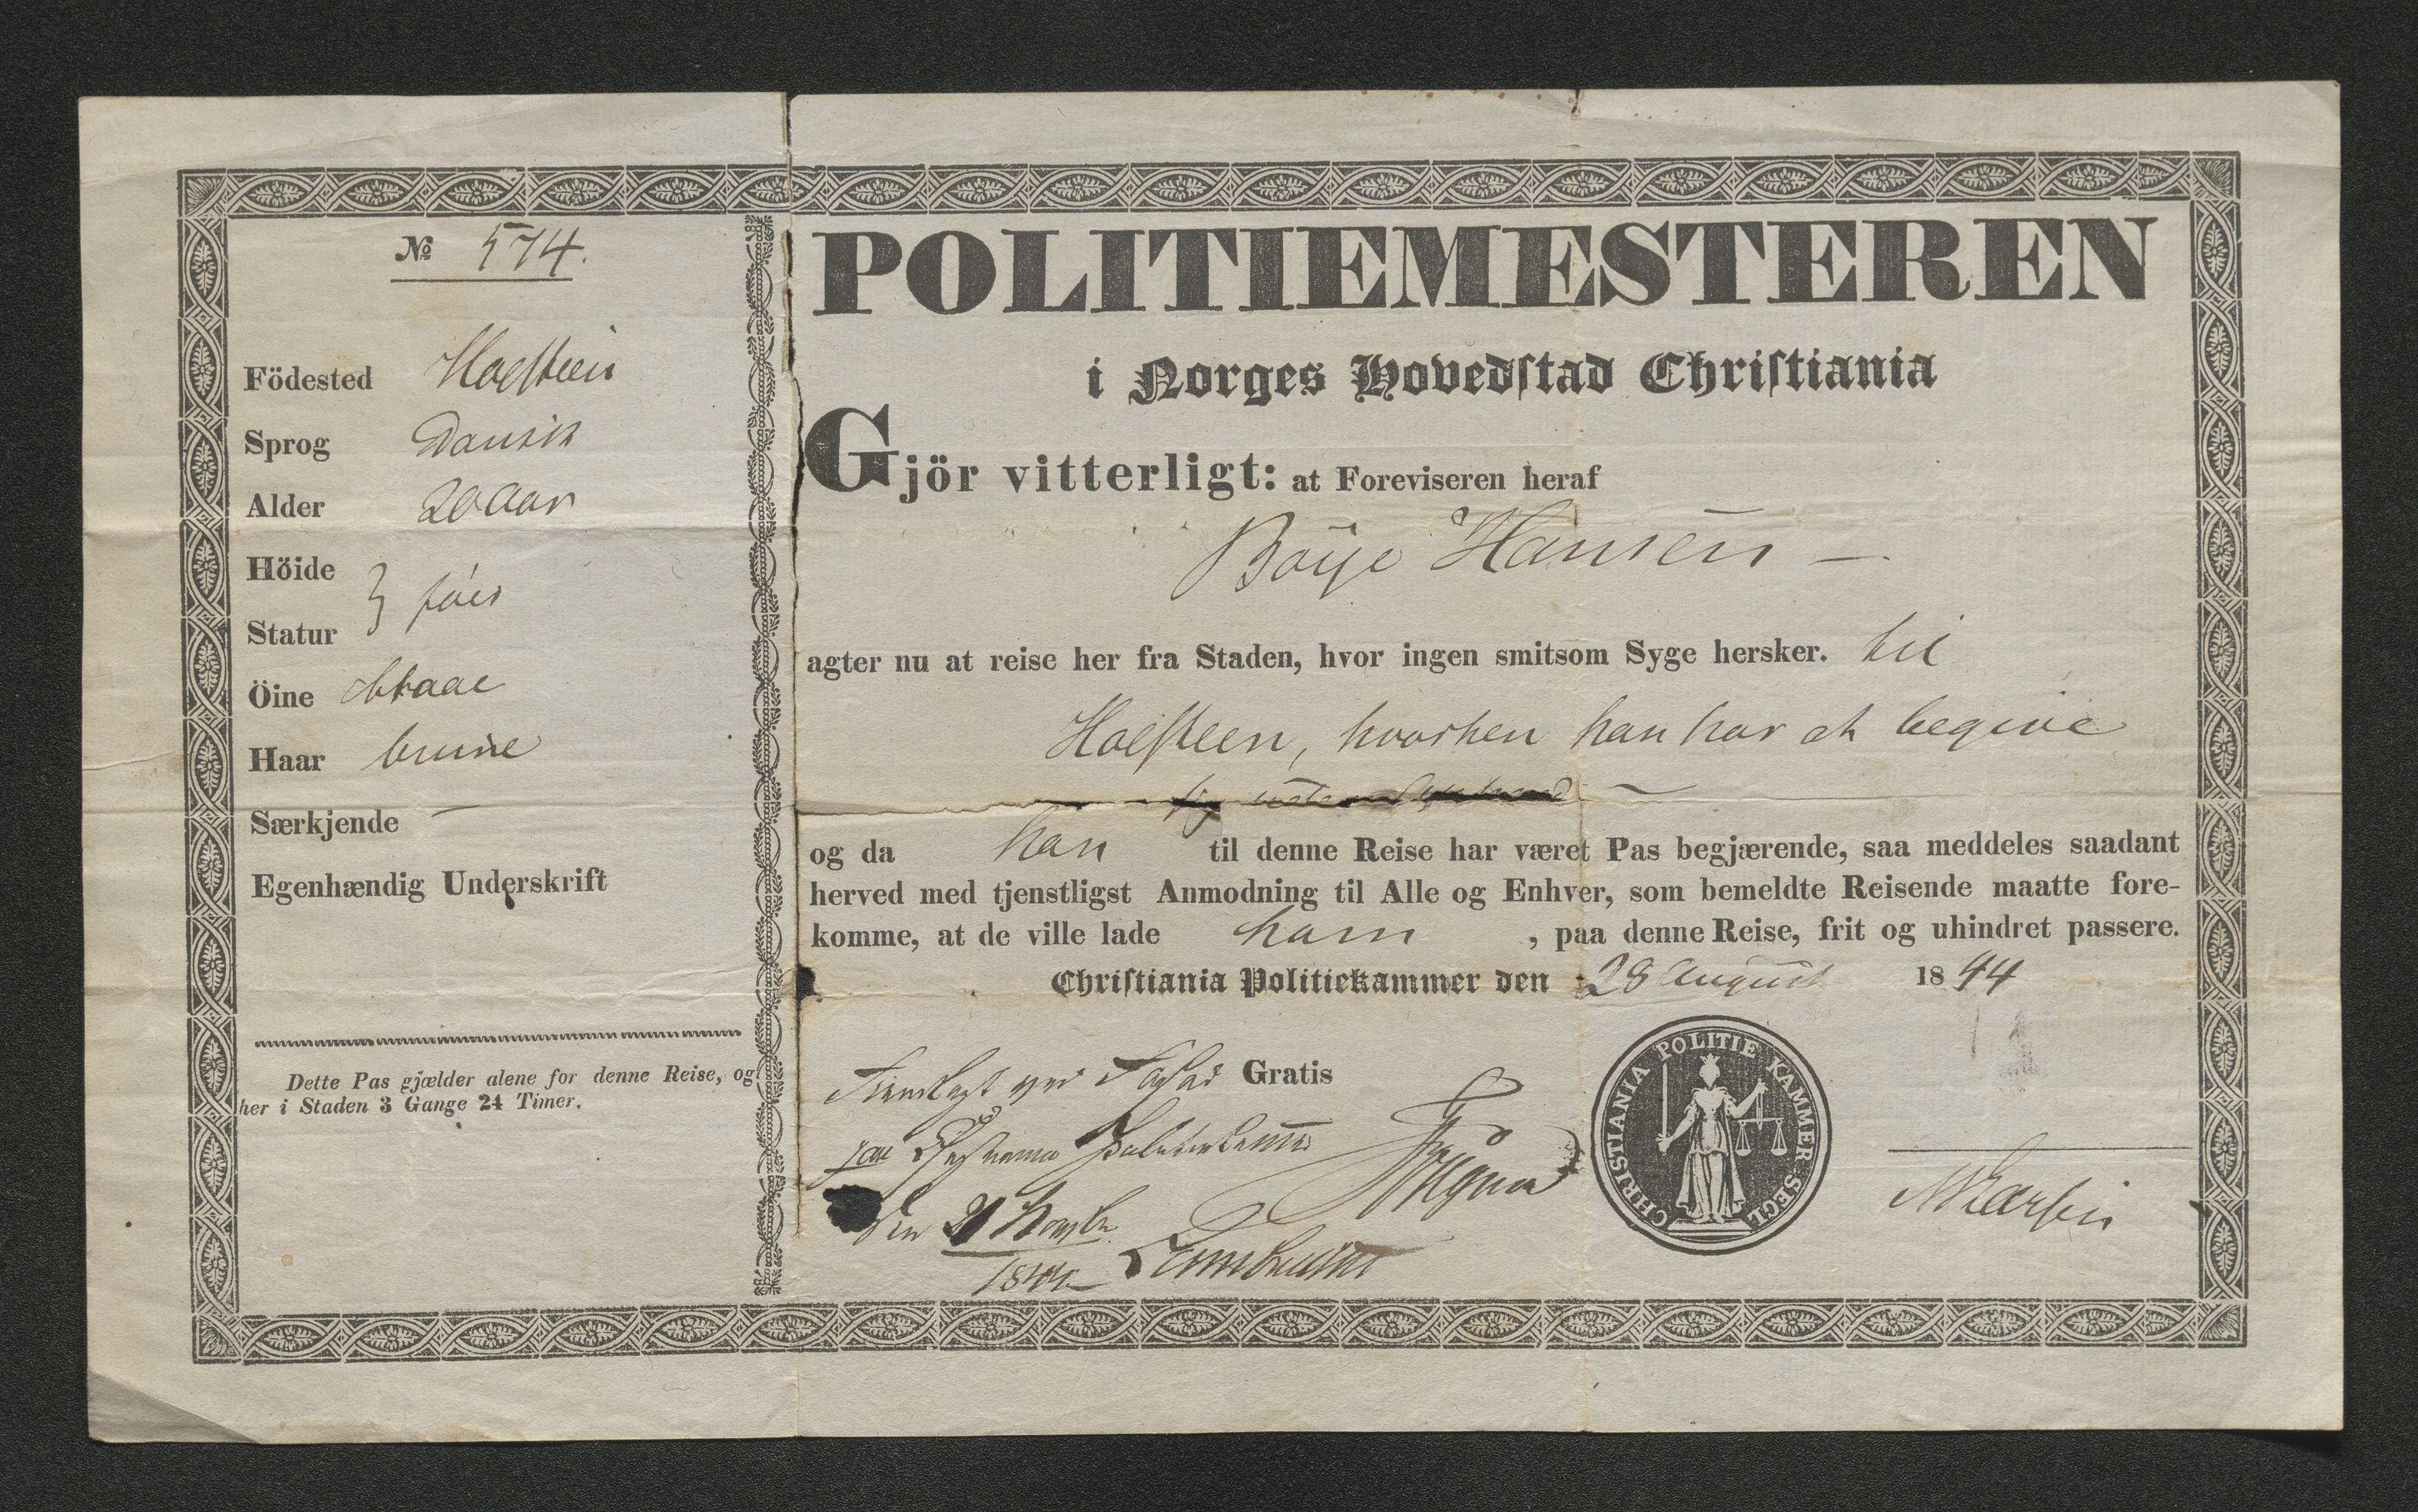 № 574.
Födested Holsteen
Sprog Dansk
Alder 20 Aar
Höide
Statur
Öine blaae
Haar brune
Særkjende —
Egenhændig Underskrift
Dette Pas gjælder alene for denne Reise, og
her i Staden 3 Gange 24 Timer.
POLITIEMESTEREN
i Norges Hovedſtad Chriſtiania
Gjör vitterligt: at Foreviseren heraf
Böye Hansen —
agter nu at reise her fra Staden, hvor ingen smitsom Syge hersker. til
Holsteen, hvorhen han har at begive
sig uden Ophold —
og da han til denne Reise har været Pas begjærende, saa meddeles saadant
herved med tjenstligst Anmodning til Alle og Enhver, som bemeldte Reisende maatte fore-
komme, at de ville lade ham , paa denne Reise, frit og uhindret passere.
Chriſtiania Politiekammer den 28 August 1844
Gratis
den 21
1844
CHRISTIANIA POLITIE KAMMER SEGL